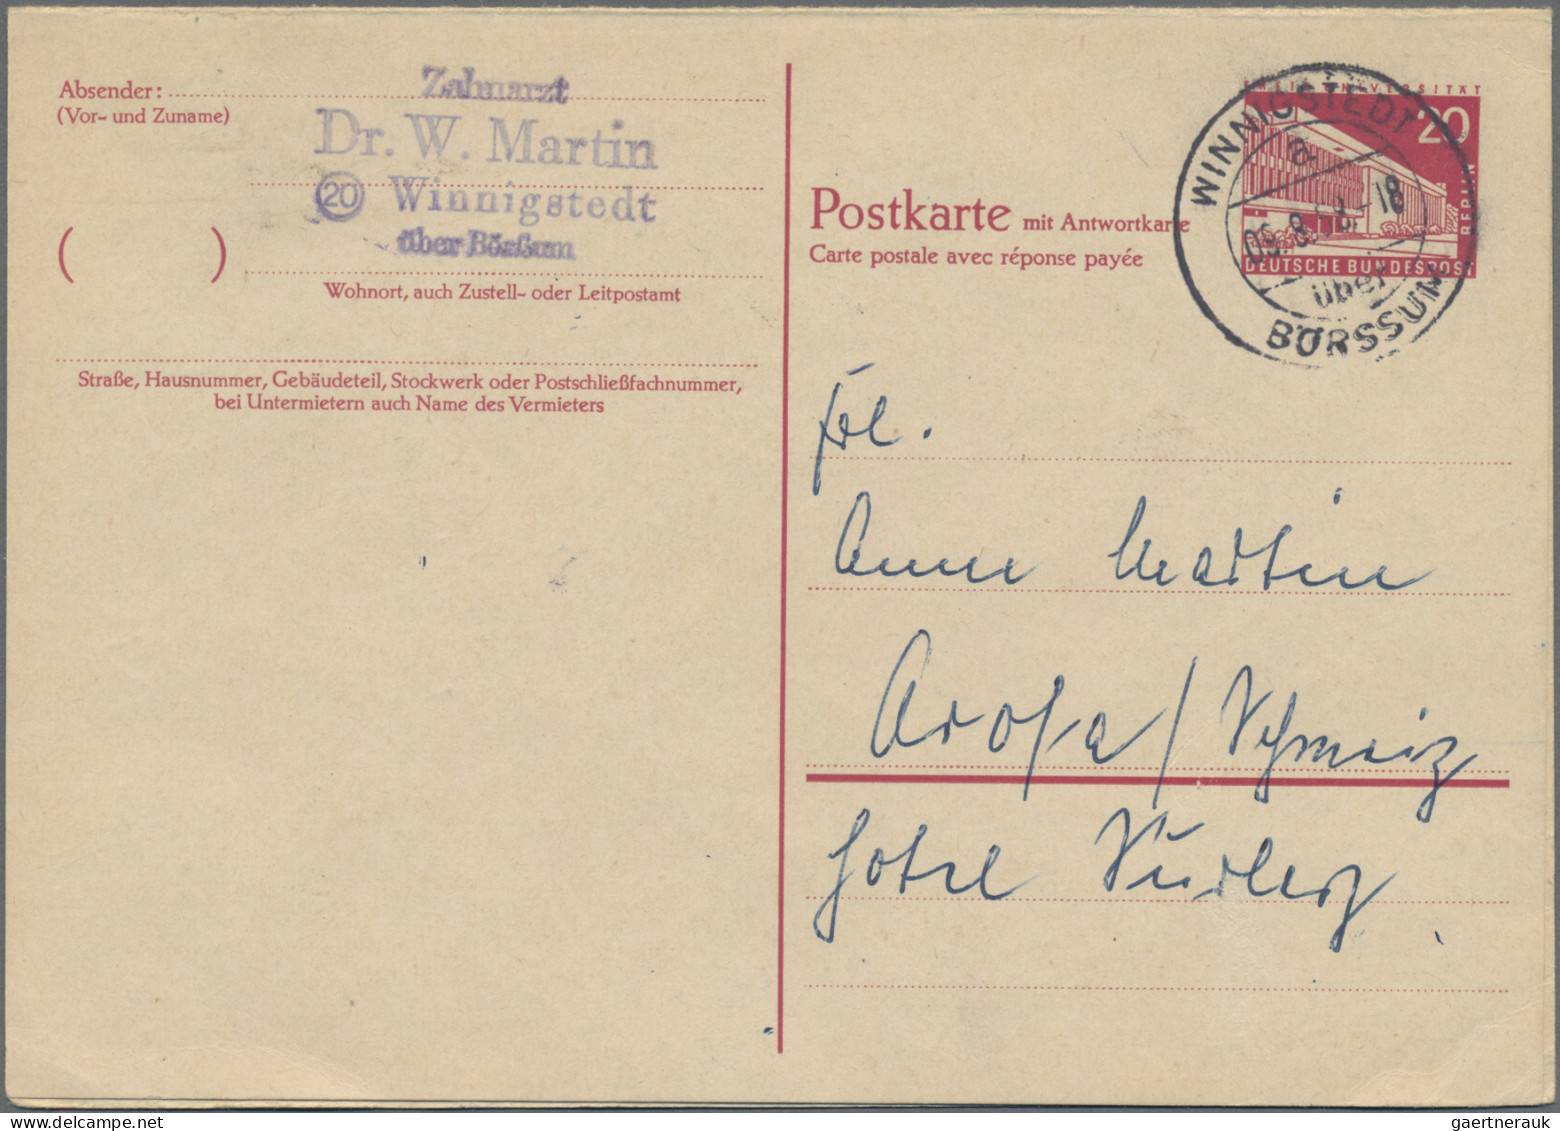 Absender:
(Vor- und Zuname)
Zahnarzt
Dr. W. Martin
20 Winnigstedt
über Börßum
( )
Wohnort, auch Zustell- oder Leitpostamt
Straße, Hausnummer, Gebäudeteil, Stockwerk oder Postschließfachnummer,
bei Untermietern auch Name des Vermieters
Postkarte mit Antwortkarte
Carte postale avec réponse payée
UNIVERSITÄT
20
BERLIN
DEUTSCHE BUNDESPOST
WINNIGSTEDT
a
09.8.58.-18
über
BÖRSSUM
Frl.
Anne Martin
Arosa / Schweiz
Hotel
gaertnerauk